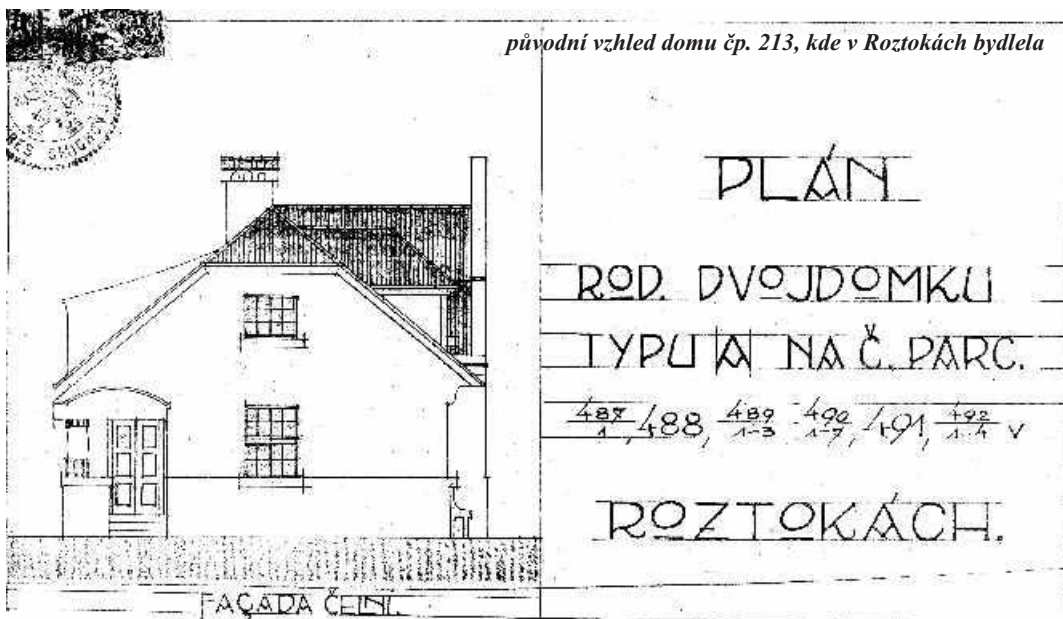 původní vzhled domu čp. 213, kde v Roztokách bydlela
PLÁN
ROD. DVOJDOMKU
TYPU A NA Č. PARC.
487/1, 488, 489/1-3 490/1-7, 491, 492/1-4 v
ROZTOKÁCH.
FAÇADA ČELNÍ.
SMICHOV